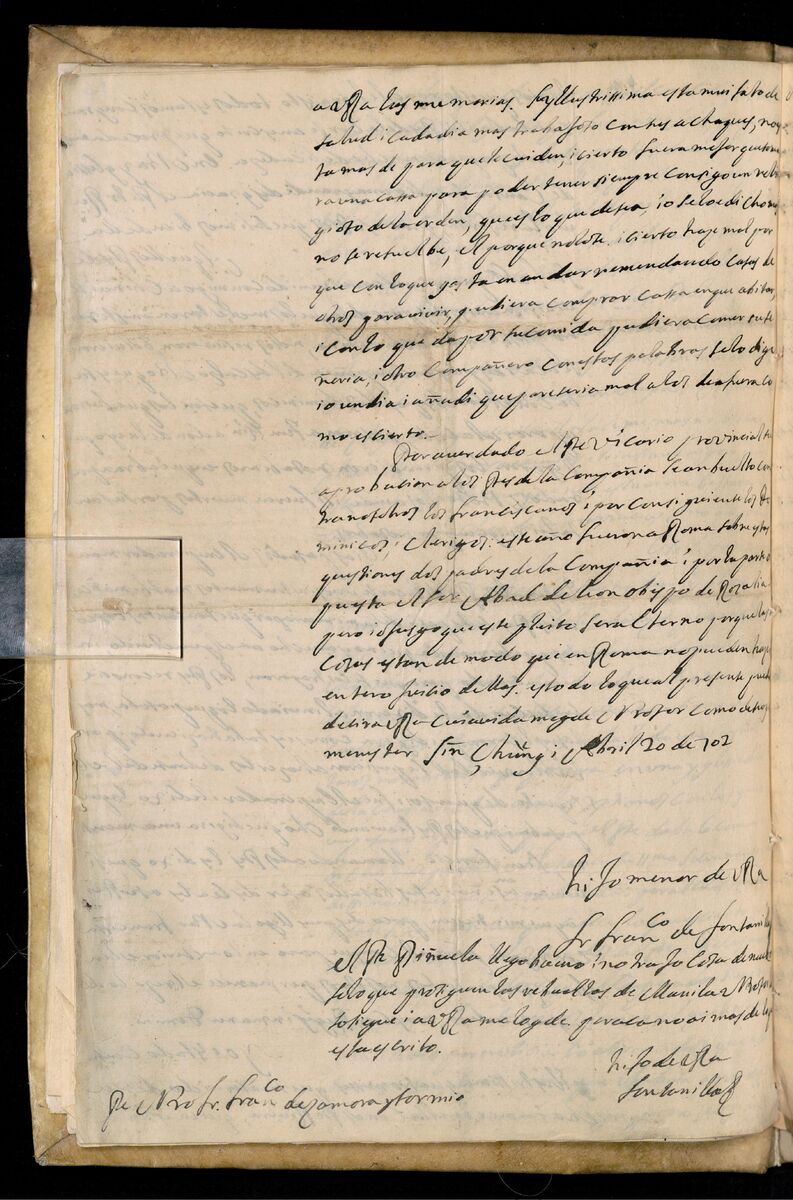 a VRa las memorias. Su Illustrissima esta mui falto de
salud i cada dia mas trabajoso con tes achaques, no
ta mas de para que le cuiden, i cierto fuera mejor que
ra una cassa para poder tener siempre consigo un reli
gioso de la orden, que es lo que desea, io se lo e dicho
no se resuelbe, el porque no lo se. i cierto haze mal por
que con lo que gasta en andar remendando casas de
otros para vivir, pudiera comprar cassa en que abitar,
i con lo que da por su comida pudiera comer su Se
ñoria, i otro Compañero con estas palabras se lo dige
io un dia i añadi que pareseria mal a los de afuera co
mo es cierto.
Por acuerdado el Pe Vicario provincial
aprobacion a los Pes de la Compañia se an buelto con
tra nosotros los franciscanos i por consiguiente los Do
minicos i Clerigos: este año fueron a Roma sobre estas
questiones dos padres de la Compañia i por la parte o
puesta el Sor Abad de leon obispo de Rosalia
pero io jusgo que este pleito sera Eterno porque las
Cosas estan de modo que en Roma no pueden haze
entero juicio dellas. es todo lo que al presente pue
desir a VRa Cuia vida me gde Nro Sor como de
menester Sin Chŭng i Abril 20 de 702
hijo menor de VRa
fr franco de fontanilla
el Pe Piñuela llego bueno i no trajo cosa de nuebo
solo que prosiguen las rebueltas de Manila Nro Sor
sosiege i a VRa me lo gde. para ca no ai mas de lo q
esta escrito.
hijo de VRa
fontanilla
Pe Nro fr. franco de zamora y tormio